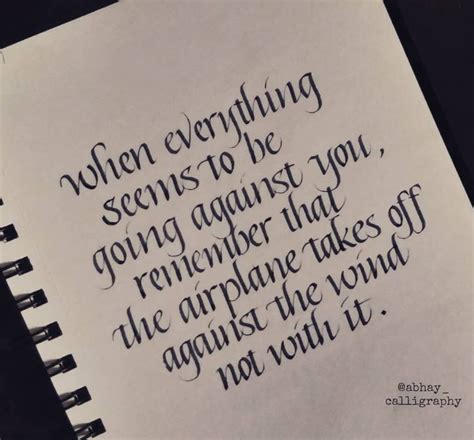 when everything
seems to be
going against you,
remember that
the airplane takes off
against the wind
not with it.
@abhay_
calligraphy